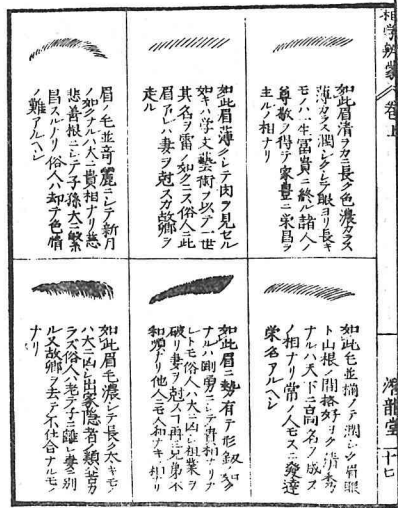 相学辨蒙 巻上
如此眉清ヲカニ長ク色濃カラス
薄カラス潤シクシテ眼ヨリ長キ
モノハ一生冨貴ニ終ル諸人ノ
尊敬ヲ得テ家豊ニ栄昌ヲ
主ルノ相ナリ
如此眉薄クシテ肉ヲ見セル
如キハ学文藝術ヲ以テ一世
其名ヲ雷ノ如クニス俗人ニ此
眉アレハ妻ヲ尅スカ故郷ヲ
走ル
眉ノ毛並奇麗ニシテ新月
ノ如クナルハ大ニ貴相ナリ慈
悲善根ニシテ子孫大ニ繁
昌スルナリ俗人ハ却テ色情
ノ難アルヘシ
如此毛並揃ノテ潤シク眉眼
ト山根ノ間格好ヨク清秀
ナルハ天下ニ高名ヲ成ス
ノ相ナリ常ノ人モスニ発達
栄名アルヘシ
如此眉ニ勢有テ形釼ノ如ク
ナルハ剛勇ニシテ吉相ナリサ
レトモ俗人ハ大ニ凶シ祖業ヲ
破リ妻ヲ尅ス再ニ兄弟不
和順ナリ他人ニモ人和ナキ相ナリ
如此眉毛濃シテ長ク太キモノ
ハ大ニ凶シ出家隠者ノ類苦カ
ラス俗人ハ老テ子ニ離レ妻ニ別
ル又故郷ヲ去テ不仕合ナルモノ
ナリ
潜龍堂
二十七